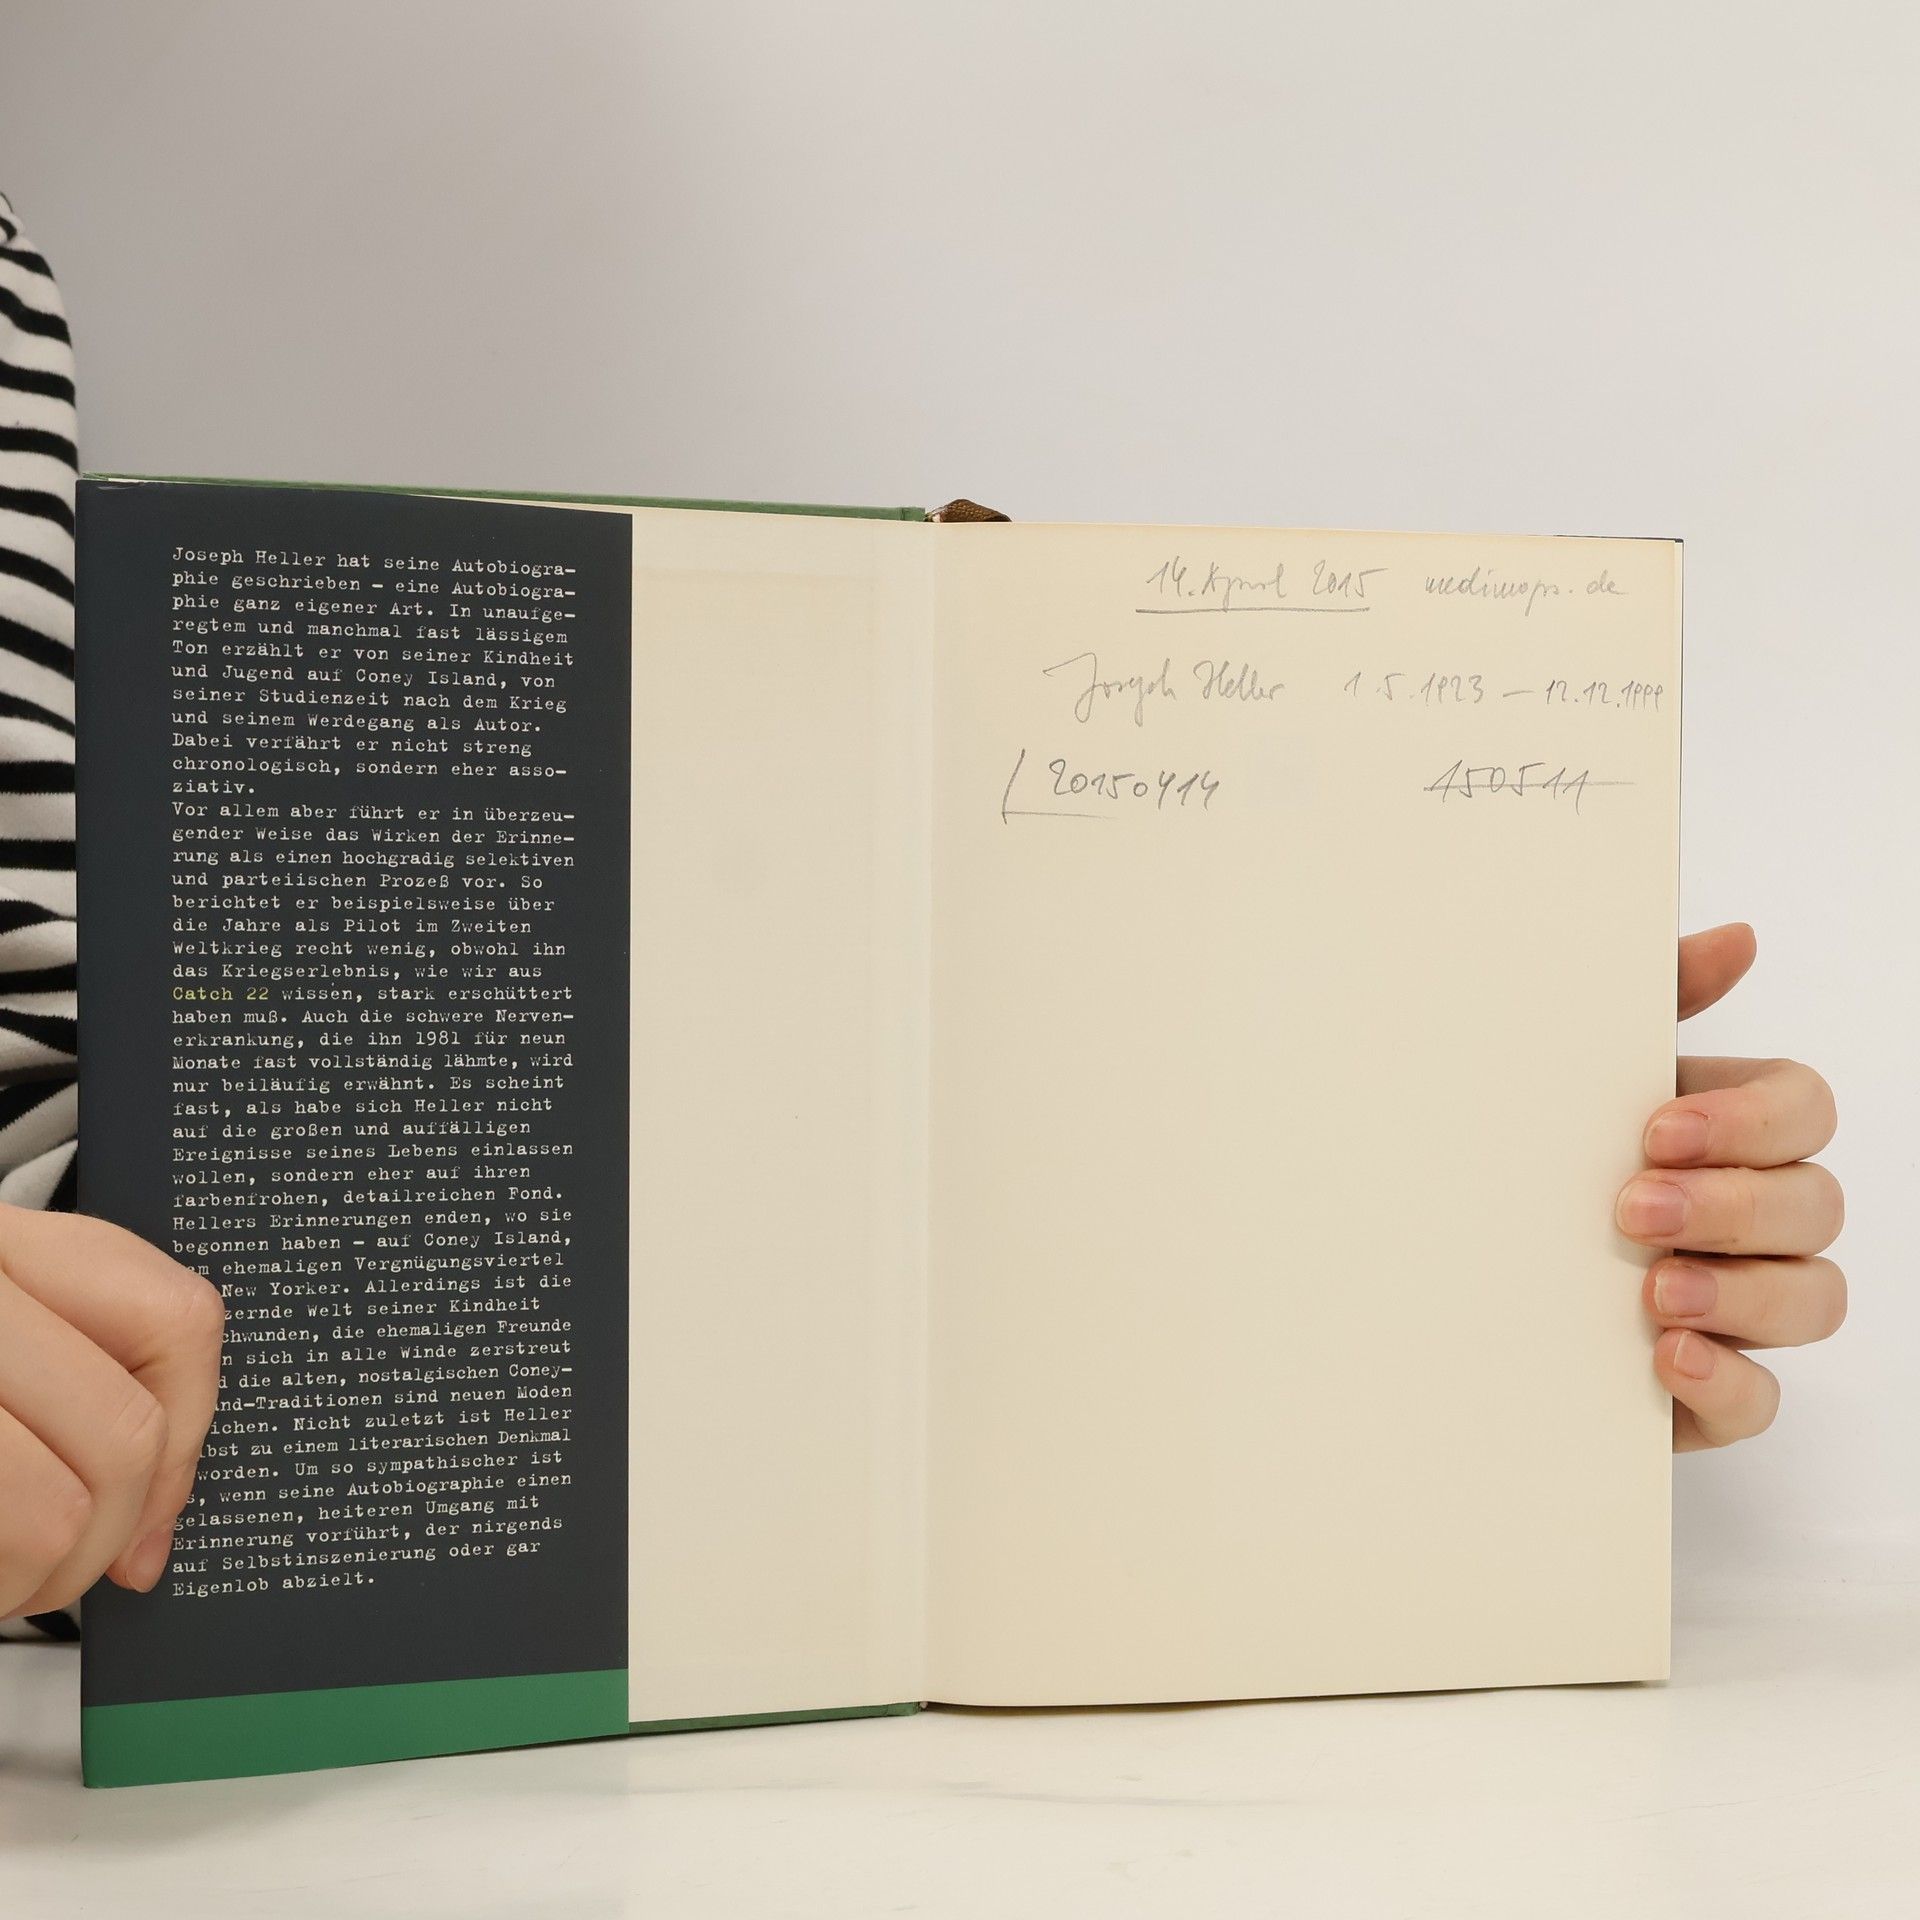 Joseph Heller hat seine Autobiogra-
phie geschrieben – eine Autobiogra-
phie ganz eigener Art. In unaufge-
regtem und manchmal fast lässigem
Ton erzählt er von seiner Kindheit
und Jugend auf Coney Island, von
seiner Studienzeit nach dem Krieg
und seinem Werdegang als Autor.
Dabei verfährt er nicht streng
chronologisch, sondern eher asso-
ziativ.
Vor allem aber führt er in überzeu-
gender Weise das Wirken der Erinne-
rung als einen hochgradig selektiven
und parteiischen Prozeß vor. So
berichtet er beispielsweise über
die Jahre als Pilot im Zweiten
Weltkrieg recht wenig, obwohl ihn
das Kriegserlebnis, wie wir aus
Catch 22 wissen, stark erschüttert
haben muß. Auch die schwere Nerven-
erkrankung, die ihn 1981 für neun
Monate fast vollständig lähmte, wird
nur beiläufig erwähnt. Es scheint
fast, als habe sich Heller nicht
auf die großen und auffälligen
Ereignisse seines Lebens einlassen
wollen, sondern eher auf ihren
farbenfrohen, detailreichen Fond.
Hellers Erinnerungen enden, wo sie
begonnen haben – auf Coney Island,
em ehemaligen Vergnügungsviertel
New Yorker. Allerdings ist die
zernde Welt seiner Kindheit
chwunden, die ehemaligen Freunde
n sich in alle Winde zerstreut
d die alten, nostalgischen Coney-
and-Traditionen sind neuen Moden
ichen. Nicht zuletzt ist Heller
lbst zu einem literarischen Denkmal
worden. Um so sympathischer ist
s, wenn seine Autobiographie einen
gelassenen, heiteren Umgang mit
Erinnerung vorführt, der nirgends
auf Selbstinszenierung oder gar
Eigenlob abzielt.
14. April 2015 medimops.de
Joseph Heller 1.5.1923 – 12.12.1999
20150414 150511